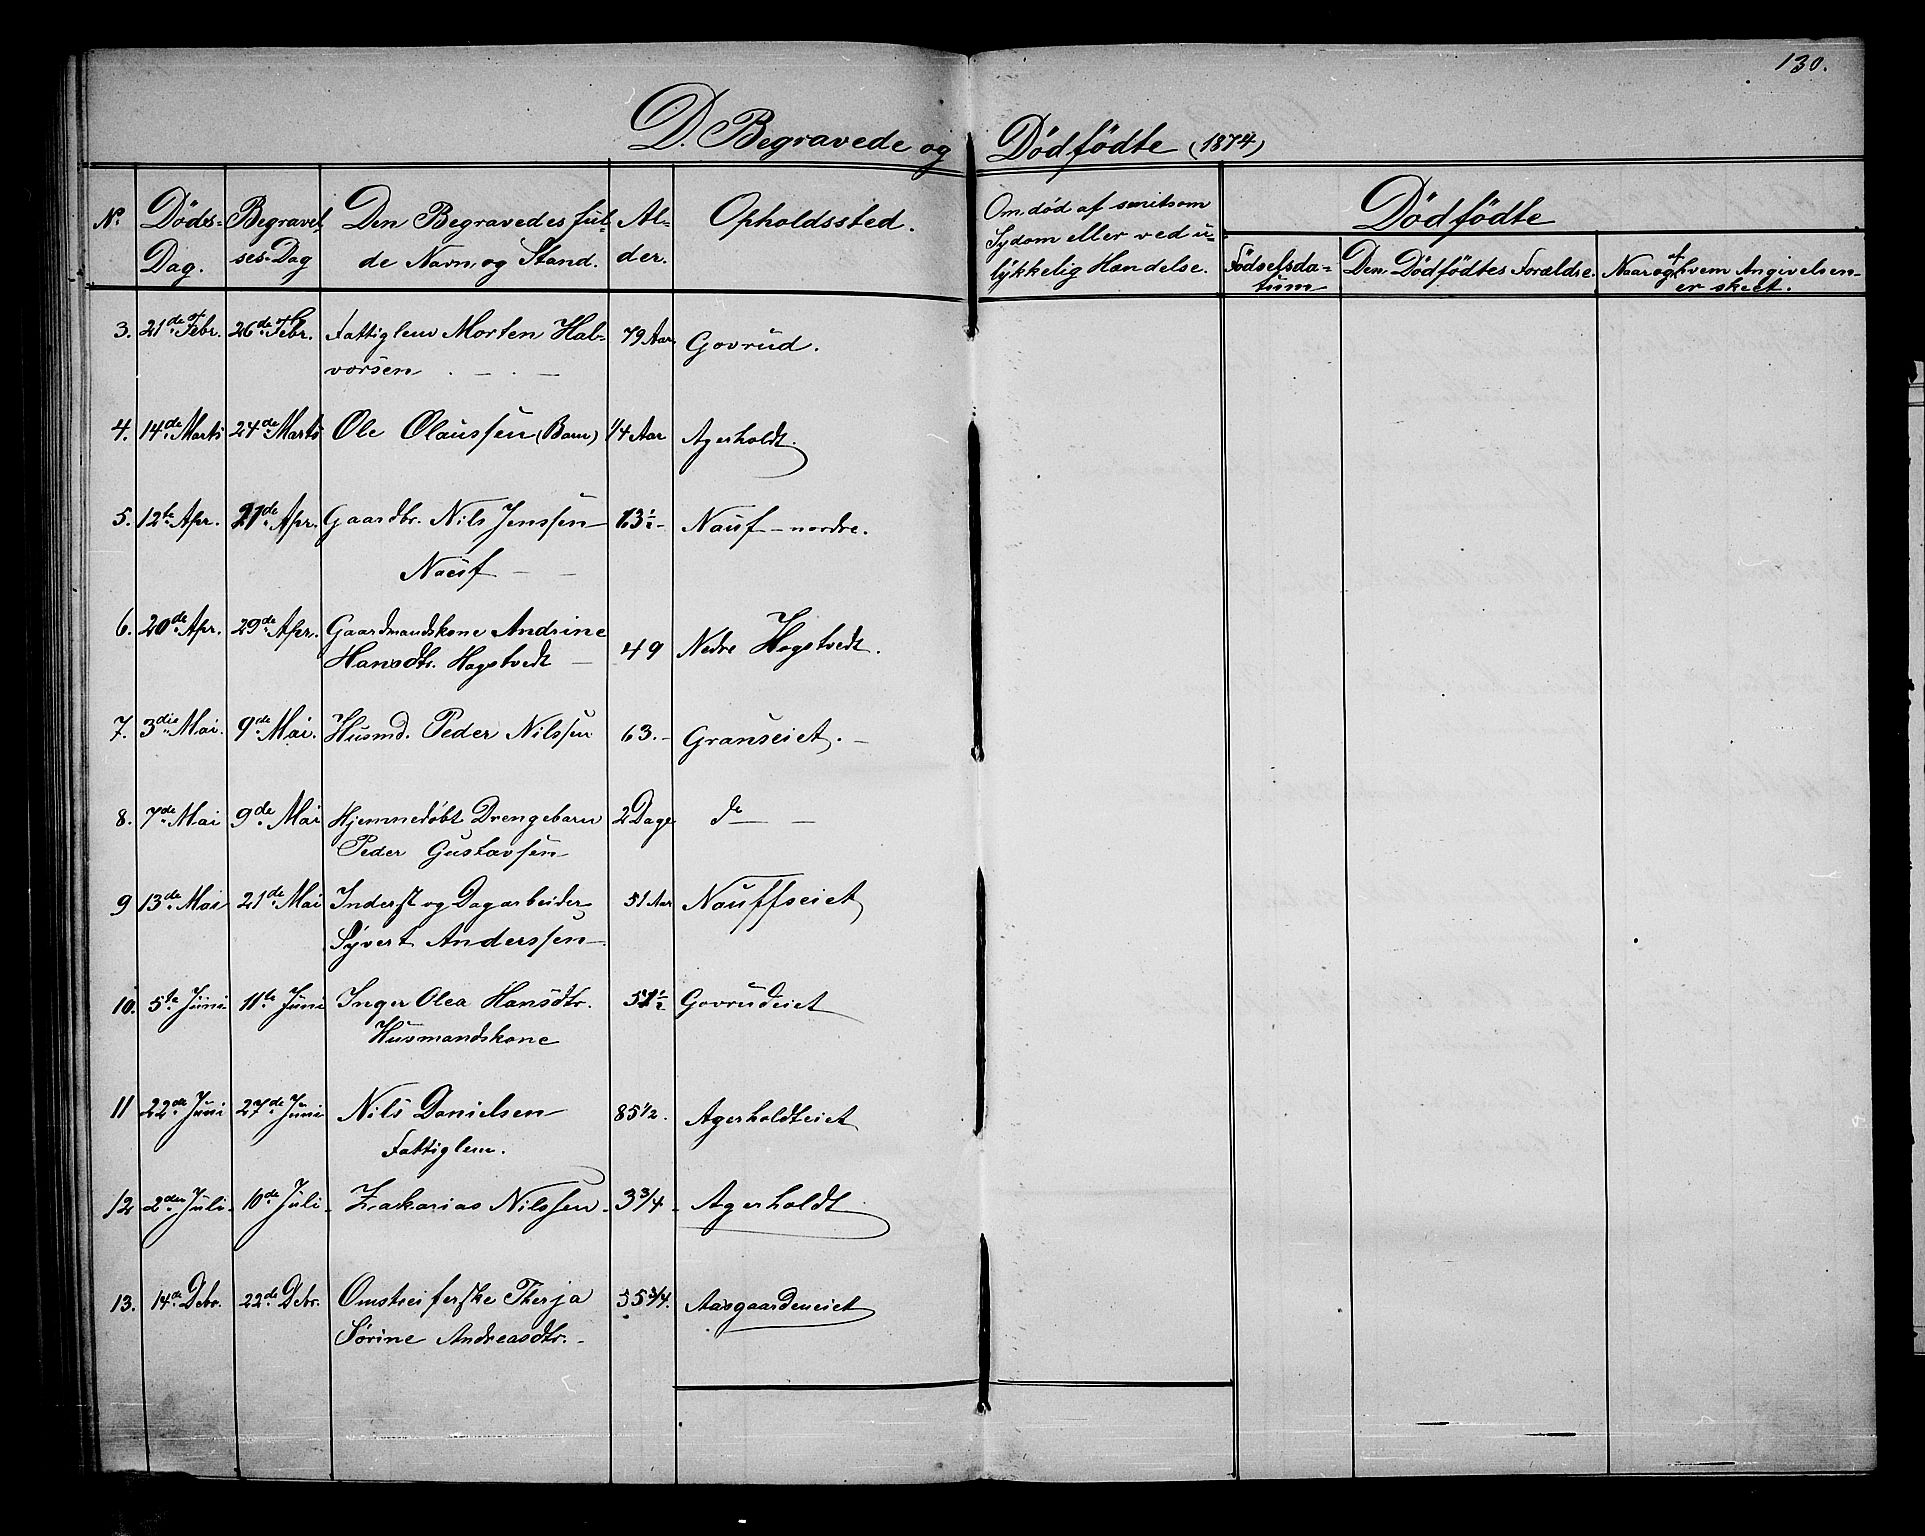 130.
D. Begravede og Dødfödte (1874)
No. Døds-Dag. Begravelses-Dag Den Begravedes fulde Navn, og Stand. Alder. Opholdssted. Om død af smitsom Sydom eller ved ulykkelig Hændelse. Dödfödte
Födselsdatum Den Dödfödtes Forældre. Naar og f hvem Angivelsen er skeet.
3. 21de Febr. 26de Febr. Fattiglem Morten Hal- 79 Aar Govrud.
vorsen . — . —
4. 14de Marts 24de Marts Ole Olaussen (Barn) 1/4 Aar Agerholdt.
5. 12te Apr. 21de Apr. Gaardbr. Nils Jenssen 63½ - Nauf - nordre.
Nauf — —
6. 20de Apr. 29de Apr. Gaardmandskone Andrine 49 Nedre Hogstvedt.
Hansdtr. Hogstvedt —
7. 3die Mai. 9de Mai. Husmd. Peder Nilssen 63. - Granseiet. —
8. 7de Mai 9de Mai Hjemmedøbt Drengebarn 2 Dage do — —
Peder Gustavsen
9 13de Mai 21de Mai Inderst og Dagarbeider 51 Aar Nauffseiet
Syvert Anderssen
10. 5te Juni 11te Juni Inger Olea Hansdtr. 51½ Govrudeiet
Husmandskone
11 22de Juni 27de Juni Nils Danielsen 85 1/2. Agerholdteiet
Fattiglem.
12 2den Juli. 10de Juli. Zakarias Nilssen. 3 3/4 - Agerholdt
13. 14de Debr. 22de Debr. Omstreiferske Therja 55 3/4. Aasgaardeneiet
Sørine Andreasdtr. -